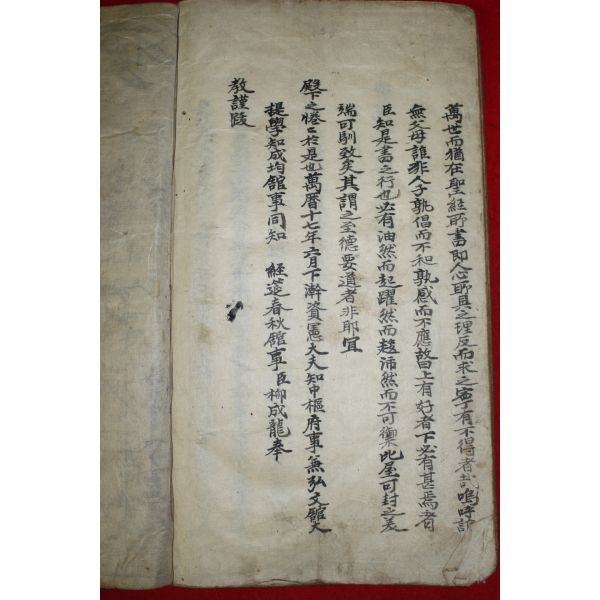 萬世而猶在聖經所書即人心所具之理反而求之寧有不得者哉嗚呼誰
無父母誰非人子孰倡而不和孰感而不應故曰上有好者下必有甚焉者
臣知是書之行也必有油然而起躍然而趍沛然而不可禦比屋可封之美
端可馴致矣其謂之至德要道者非耶宜
殿下之惓〻於是也萬曆十七年六月下澣資憲大夫知中樞府事兼弘文館大
提學知成均館事同知 經筵春秋館事臣柳成龍奉
教謹跋